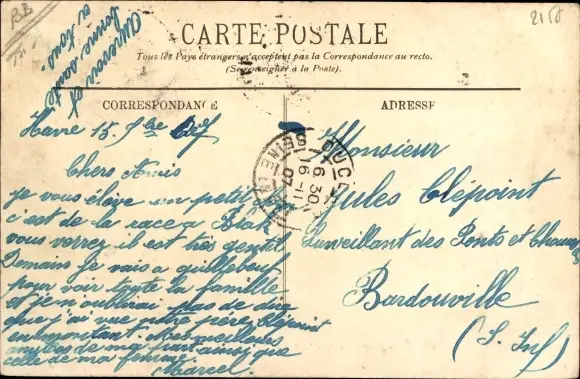 BB
2150
Au revoir et
bonne santé
a tous
CARTE POSTALE
Tous les Pays étrangers n'acceptent pas la Correspondance au recto.
(Se renseigner à la Poste).
CORRESPONDANCE
ADRESSE
Havre 15
Chers Amis
je vous élève un petit
c'est de la race a
vous verrez il est très gentil
Demain je vais a quillebeuf
pour voir toute la famille
et je n'oublierai pas de dire
que j'ai vue votre père Clépoint
en montant Mes meilleures
amities de ma part ainsi que
celle de ma femme
Marcel
DUCLAIR
6 30
16 - 11
07
SEINE INF
Monsieur
Jules Clépoint
Surveillant des Ponts et Chaussées
Bardouville
(S. Inf)